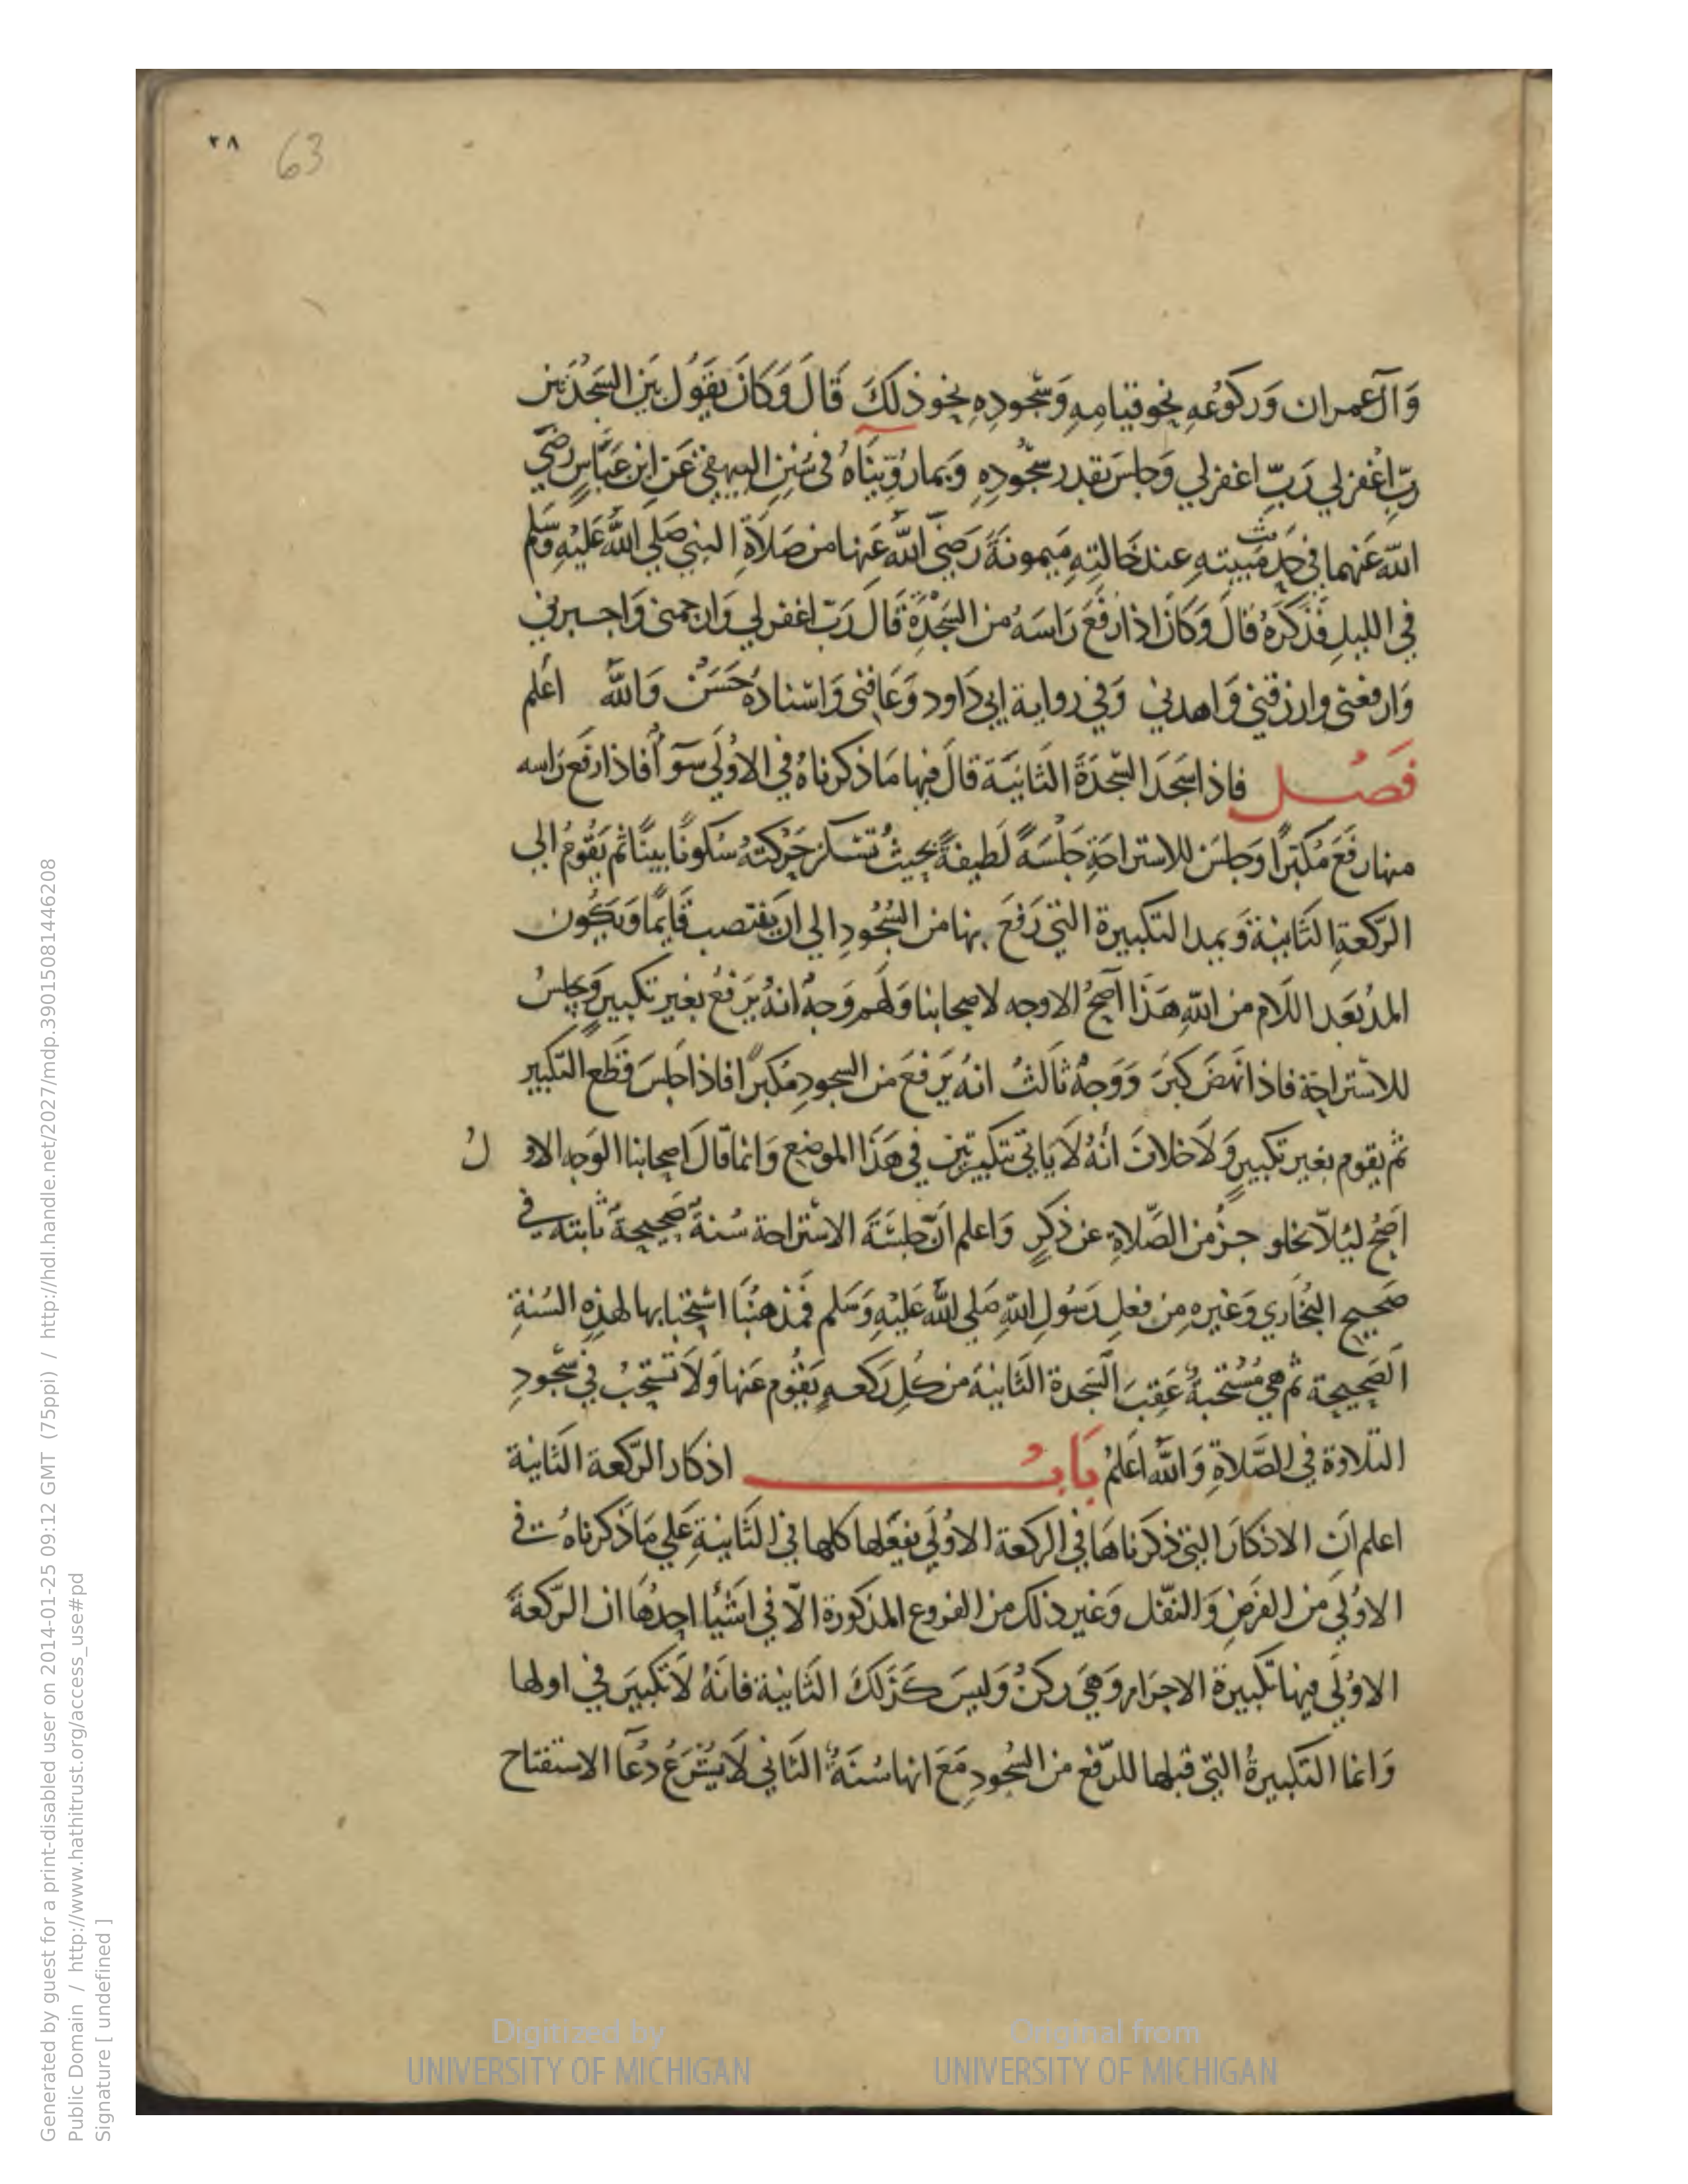 ٣٨ 63
وَآل عمران وَركوُعُهِ نحو قيامِهِ وَسُجودِهِ نحو ذلكَ قَالَ وَكَانَ يقَوُل بَيَن السَجدُتَين
رَبِّ اغُفرلي رَبِّ اغفرلي وَجلسَ بقدر سجُوُدِهِ وَبمارُوّينَاهُ في سُنِن البيهقي عَن ابن عَبَّاسٍ رضَي
الله عَنهما في حَديث مَبيتهِ عند خَالتِهِ مَيمونةَ رَضيَ اللهُ عَنها من صَلاَةِ النبي صَلي اللهُ عَليْهِ وَسَلم
في الليلِ فذَكرَهُ قالَ وَكَانَ اذا رفَعَ رَاسَهُ من السَجْدَة قَالَ رَبّ اغفرلي وَارحمني وَاجبرني
وَارفعني وارزقني وَاهدني وَفي رواية ابي دَاود وَعَافني وَاسْنادهُ حَسَنٌ وَاللهُ اعَلم
فَصُـــل فاذا سَجَدَ السّجدَةَ الثَانيَة قالَ فيها مَا ذكرناهُ في الاوُلَي سَوآً فاذا رفَعَ رَاسه
منها رفَعَ مُكبّراً وَجلسَ للاستراحَةِ جَلْسَةً لَطيفةً بحيثُ تسْكن حَرْكتهُ سُكوناً بيناً ثم يَقُومُ الي
الرّكعةِ الثَانيةَ وَيمد التكبيرة التي رَفَعَ بها من السُجُودِ الي ان ينتصب قَايماً وَيكُون
المدُ بَعَد اللَام من اللهِ هَذَا اَصحُ الاوجه لاصحابنا وَلهُم وَجهُ انهُ يرَفعُ بغير تكبيرٍ وَيجلسُ
للاسْتراحَة فاذا نهَضَ كبرَ وَوَجهٌ ثالثُ انهُ يَرفعَ من السجودِ مُكبراً فاذا جلسَ قَطَع التكبير
ثم يقوم بغير تكبيرٍ وَلاَخلاف اَنهُ لاَ ياتي بتكبيرتين في هَذا الموضِع وَانما قَالَ اصحابنا الوَجه الاوَلُ
اَصحُ ليَلاّ يخلو جزُ من الصّلاةِ عن ذكرٍ وَاعلم انّ جلسَةَ الاسْتراحة سُنةٌ صَحيحةٌ ثابته في
صَحيحِ البُخَاري وَغيره مِن فعلِ رَسُولِ اللهِ صَلي اللهُ عَليْهِ وَسَلم فَمَذهبُنَا اسْتحبَابها لهذِهِ السُنةِ
الَصَحيحة ثم هي مُسُتحَبةٌ عَقِبَ السَجدة الثَانيةَ من كُلِ رَكعهٍ يَقوُم عَنها وَلاَ تستحَبُ في سُجُودِ
التلاوة في الصَّلاةِ وَاللهُ اعَلمُ بَابُـــــــ اذكار الرّكعة الثَانية
اعلم ان الاذكارَ التي ذكرَناهَا في الركعة الاوُلَي يفعَلها كلها في الثَانيةِ عَلي مَا ذَكرناهُ في
الاوُلي من الفرضِ وَالنفَل وَغير ذلك من الفروع المذكورة الاّ في اشيُاَ احدُهَا ان الرّكعةَ
الاوُلَي فيها تكبيرة الاحرَام وَهيَ ركنُ وَليسَ كَذلكَ الثَانيَة فانَهُ لَا تكبيَر في اولها
وَانما التكبيرةُ التي قبلها للرّفع من السُجودِ مَعَ انها سُنَةٌ الثَاني لاَ يشْرَعُ دُعَآ الاستفتاح
Generated by guest for a print-disabled user on 2014-01-25 09:12 GMT (75ppi) / http://hdl.handle.net/2027/mdp.39015081446208
Public Domain / http://www.hathitrust.org/access_use#pd
Signature [ undefined ]
Digitized by
UNIVERSITY OF MICHIGAN
Original from
UNIVERSITY OF MICHIGAN